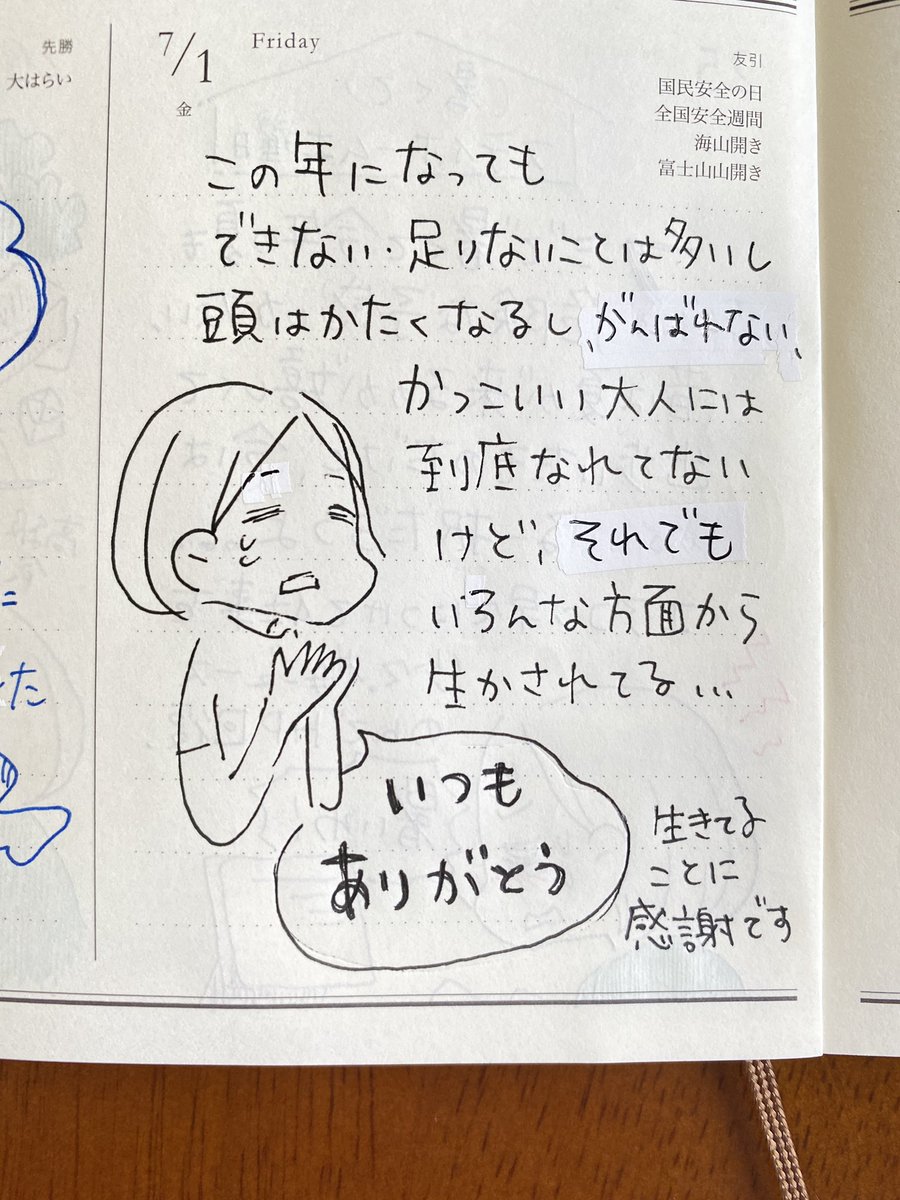 先勝
大はらい
7/1
Friday
金
友引
国民安全の日
全国安全週間
海山開き
富士山山開き
この年になっても
できない・足りないことは多いし
頭はかたくなるし、がんばれない、
かっこいい大人には
到底なれてない
けど、それでも
いろんな方面から
生かされてる…
いつも
ありがとう
生きてる
ことに
感謝です
に
た